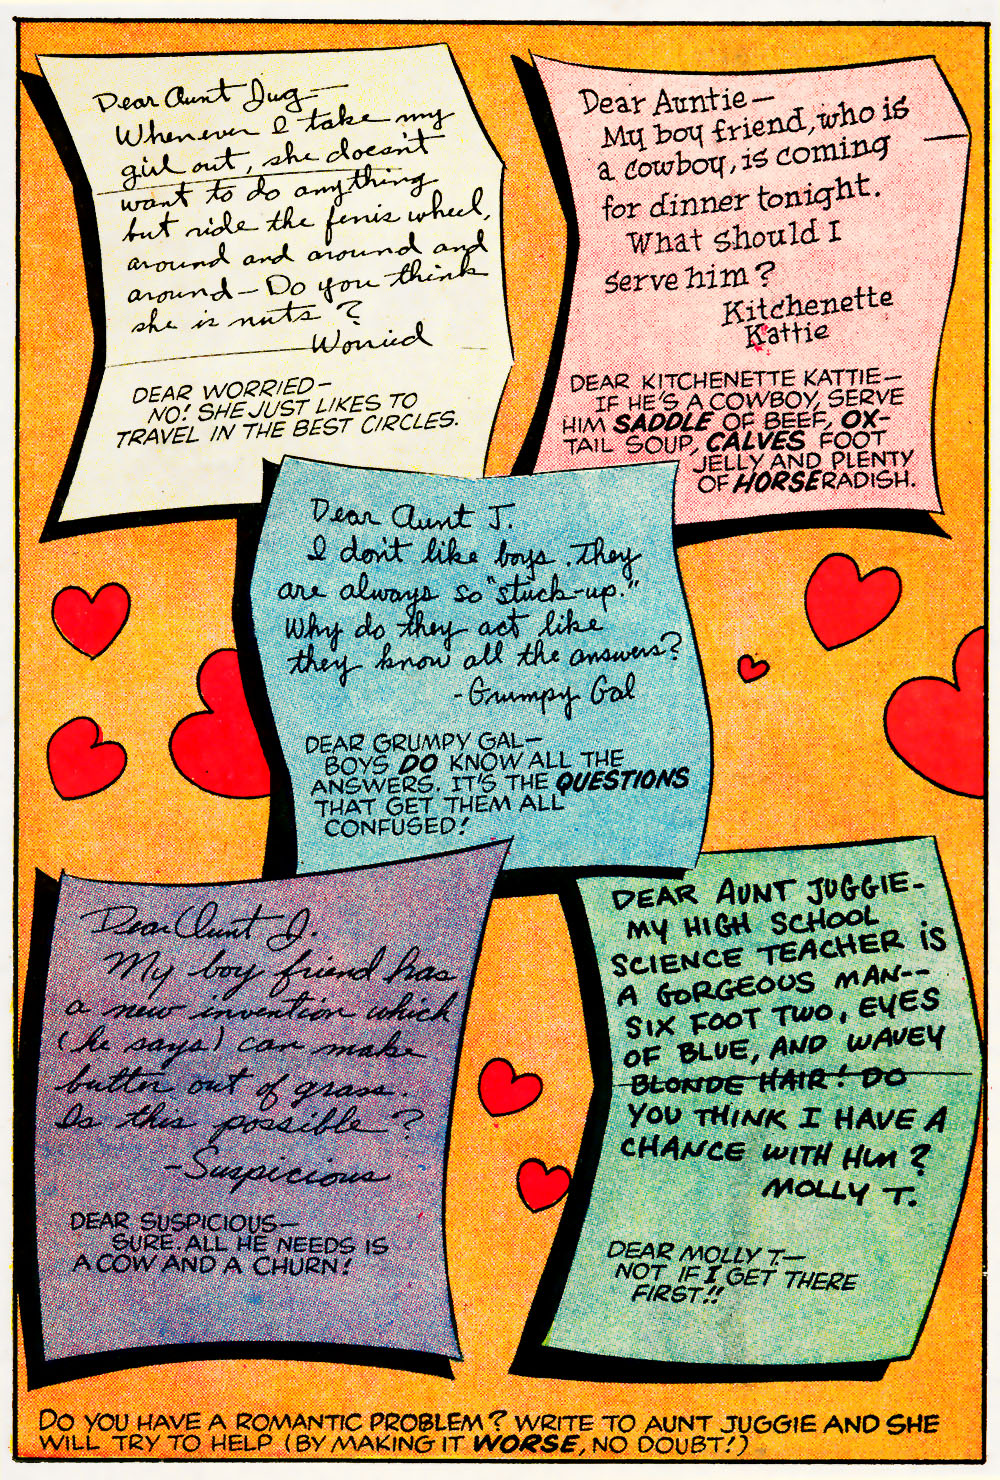 Dear Aunt Jug—
Whenever I take my
girl out, she doesn't
want to do anything
but ride the ferris wheel,
around and around and
around— Do you think
she is nuts?
Worried
DEAR WORRIED—
NO! SHE JUST LIKES TO
TRAVEL IN THE BEST CIRCLES.
Dear Auntie—
My boy friend, who is
a cowboy, is coming
for dinner tonight.
What should I
serve him?
Kitchenette
Kattie
DEAR KITCHENETTE KATTIE—
IF HE'S A COWBOY, SERVE
HIM SADDLE OF BEEF, OX-
TAIL SOUP, CALVES FOOT
JELLY AND PLENTY
OF HORSERADISH.
Dear Aunt J.
I don't like boys. they
are always so "stuck-up."
Why do they act like
they know all the answers?
-Grumpy Gal
DEAR GRUMPY GAL—
BOYS DO KNOW ALL THE
ANSWERS. IT'S THE QUESTIONS
THAT GET THEM ALL
CONFUSED!
Dear Aunt J.
My boy friend has
a new invention which
(he says) can make
butter out of grass.
Is this possible?
-Suspicious
DEAR SUSPICIOUS—
SURE. ALL HE NEEDS IS
A COW AND A CHURN!
DEAR AUNT JUGGIE-
MY HIGH SCHOOL
SCIENCE TEACHER IS
A GORGEOUS MAN--
SIX FOOT TWO, EYES
OF BLUE, AND WAVEY
BLONDE HAIR! DO
YOU THINK I HAVE A
CHANCE WITH HIM?
MOLLY T.
DEAR MOLLY T.—
NOT IF I GET THERE
FIRST!!
DO YOU HAVE A ROMANTIC PROBLEM? WRITE TO AUNT JUGGIE AND SHE
WILL TRY TO HELP (BY MAKING IT WORSE, NO DOUBT!)